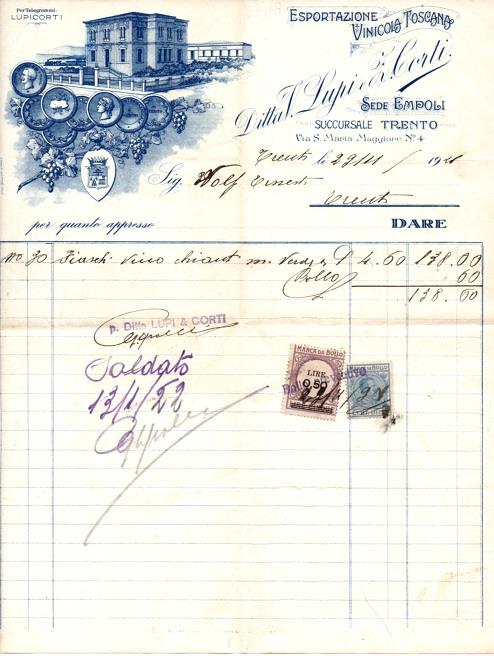 Per Telegrammi:
LUPICORTI
ESPORTAZIONE
VINICOLA TOSCANA
Ditta F. Lupi & F. Corti
SEDE EMPOLI
SUCCURSALE TRENTO
Via S. Maria Maggiore N.º 4
Trento li 29/11/ 192
Sig. Wolf Ernesto
Trento
per quanto appresso
DARE
Nº 30 Fiaschi Vino chianti 4.60 138.00
Bollo 60
138.60
p. Ditta LUPI & CORTI
Saldato
13/1/22
MARCA DA BOLLO
LIRE
0,50